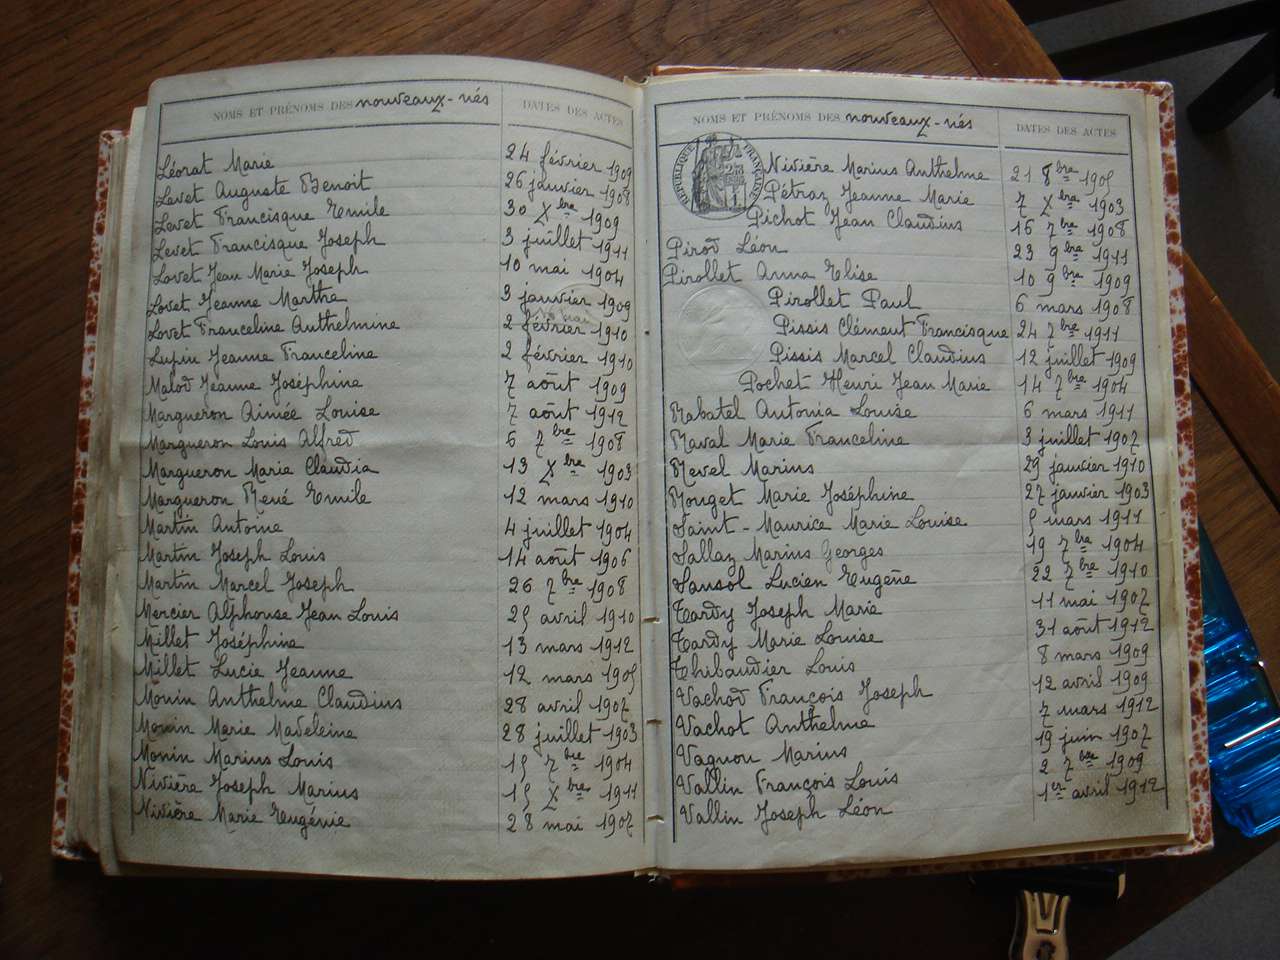 NOMS ET PRÉNOMS DES nouveaux-nés DATES DES ACTES
Léorat Marie 24 février 1909
Levet Auguste Benoit 26 janvier 1908
Levet Francisque Emile 30 Xbre 1909
Levet Francisque Joseph 3 juillet 1911
Lovet Jean Marie Joseph 10 mai 1904
Lovet Jeanne Marthe 3 janvier 1909
Lovet Franceline Anthelmine 2 février 1910
Lupin Jeanne Franceline 2 février 1910
Malod Jeanne Joséphine 7 août 1909
Margueron Aimée Louise 7 août 1912
Margueron Louis Alfred 6 7bre 1908
Margueron Marie Claudia 13 Xbre 1903
Margueron René Emile 12 mars 1910
Martin Antoine 4 juillet 1904
Martin Joseph Louis 14 août 1906
Martin Marcel Joseph 26 7bre 1908
Mercier Alphonse Jean Louis 25 avril 1910
Millet Joséphine 13 mars 1912
Millet Lucie Jeanne 12 mars 1905
Monin Anthelme Claudius 28 avril 1902
Monin Marie Madeleine 28 juillet 1903
Monin Marius Louis 15 7bre 1904
Nivière Joseph Marius 15 Xbre 1911
Nivière Marie Eugénie 28 mai 1902
NOMS ET PRÉNOMS DES nouveaux-nés DATES DES ACTES
RÉPUBLIQUE FRANÇAISE
Nivière Marius Anthelme 21 8bre 1905
Pétraz Jeanne Marie 7 Xbre 1903
Pichot Jean Claudius 16 7bre 1908
Pirod Léon 23 9bre 1911
Pirollet Anna Elise 10 9bre 1909
Pirollet Paul 6 mars 1908
Pissis Clément Francisque 24 7bre 1911
Pissis Marcel Claudius 12 juillet 1909
Pochet Henri Jean Marie 14 7bre 1904
Rabatel Antonia Louise 6 mars 1911
Raval Marie Franceline 3 juillet 1902
Revel Marius 29 janvier 1910
Rouget Marie Joséphine 27 janvier 1903
Saint-Maurice Marie Louise 5 mars 1911
Sallaz Marius Georges 19 7bre 1904
Sansol Lucien Eugène 22 7bre 1910
Tardy Joseph Marie 11 mai 1902
Tardy Marie Louise 31 août 1912
Thibaudier Louis 8 mars 1909
Vachod François Joseph 12 avril 1909
Vachot Anthelme 7 mars 1912
Vagnon Marius 19 juin 1902
Vallin François Louis 2 7bre 1909
Vallin Joseph Léon 1er avril 1912